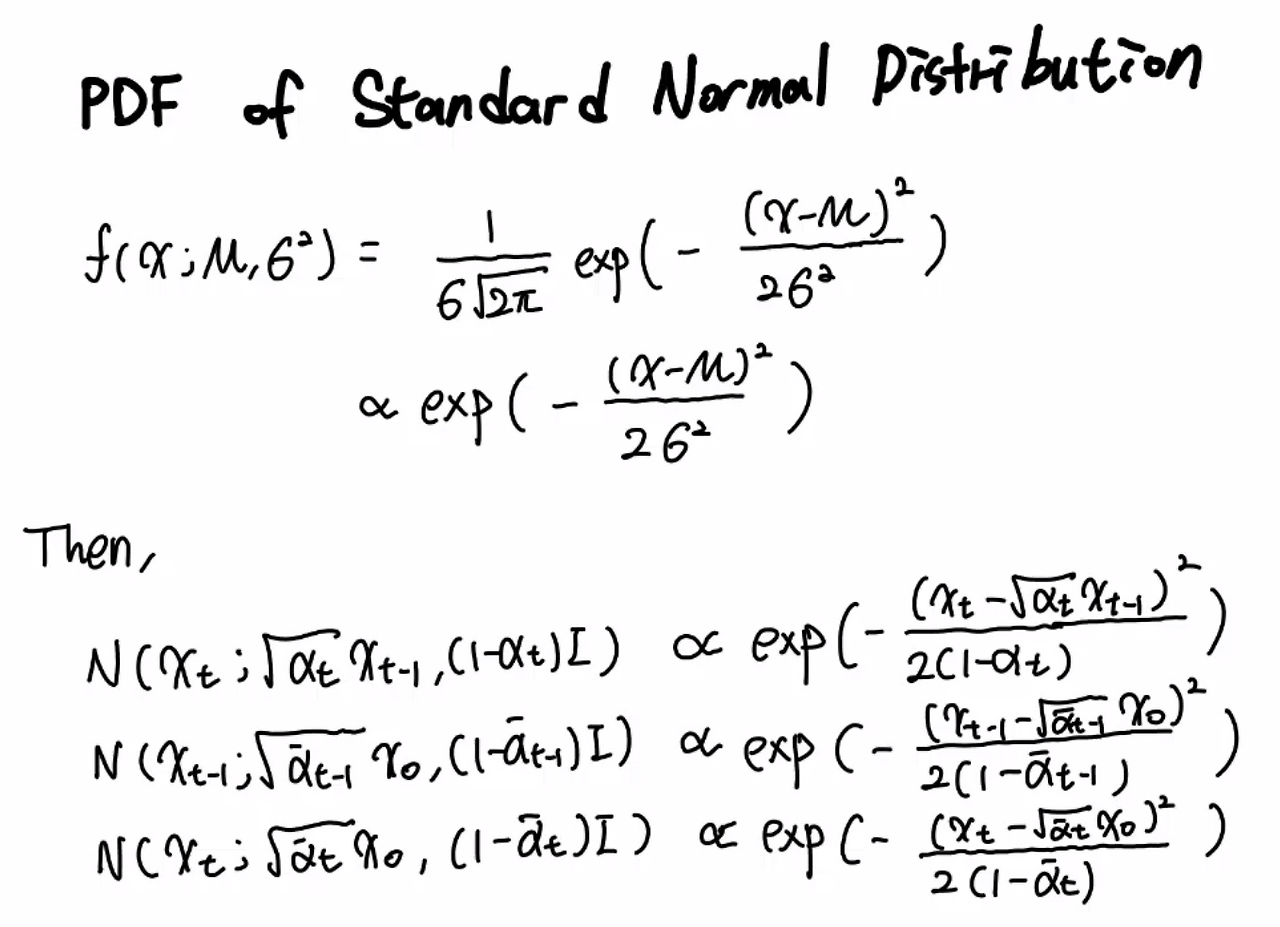 PDF of Standard Normal Distribution
f(x; μ, σ²) = \frac{1}{σ\sqrt{2π}} exp(- \frac{(x-μ)²}{2σ²})
∝ exp(- \frac{(x-μ)²}{2σ²})
Then,
N(x_t; \sqrt{α_t} x_{t-1}, (1-α_t)I) ∝ exp(- \frac{(x_t - \sqrt{α_t} x_{t-1})²}{2(1-α_t)})
N(x_{t-1}; \sqrt{\bar{α}_{t-1}} x_0, (1-\bar{α}_{t-1})I) ∝ exp(- \frac{(x_{t-1} - \sqrt{\bar{α}_{t-1}} x_0)²}{2(1-\bar{α}_{t-1})})
N(x_t; \sqrt{\bar{α}_t} x_0, (1-\bar{α}_t)I) ∝ exp(- \frac{(x_t - \sqrt{\bar{α}_t} x_0)²}{2(1-\bar{α}_t)})